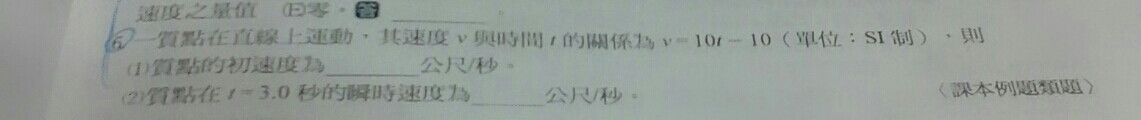 速度之量值 (E)零。答
6. 一質點在直線上運動,其速度 v 與時間 t 的關係為 v=10t-10(單位:SI 制),則
(1)質點的初速度為______公尺/秒。
(2)質點在 t=3.0 秒的瞬時速度為______公尺/秒。
〈課本例題類題〉